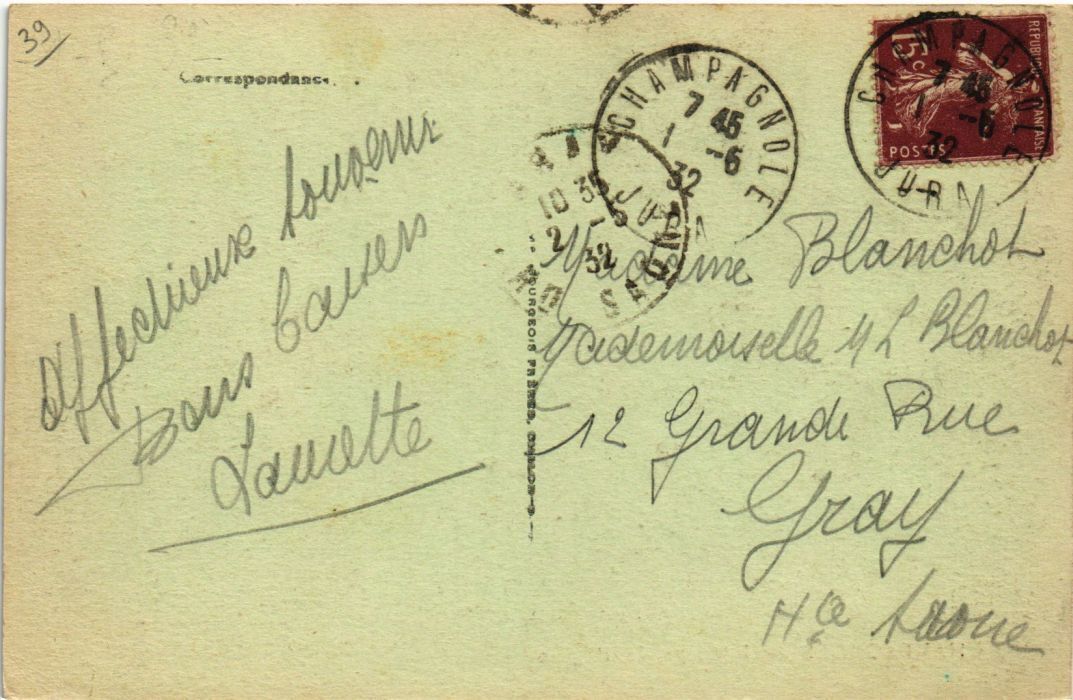 39
Correspondance
Affectueux souvenir
Bons baisers
CHAMPAGNOLE
7 45
1 -6
32
JURA
CHAMPAGNOLE
7 45
1 -6
32
JURA
REPUBLIQUE FRANÇAISE
15c
POSTES
GRAY
10 35
2 -6
32
HTE SAONE
BOURGEOIS FRERES, CHALON-S-
Madame Blanchot
Mademoiselle M L Blanchot
12 Grande Rue
Gray
Hte Saone